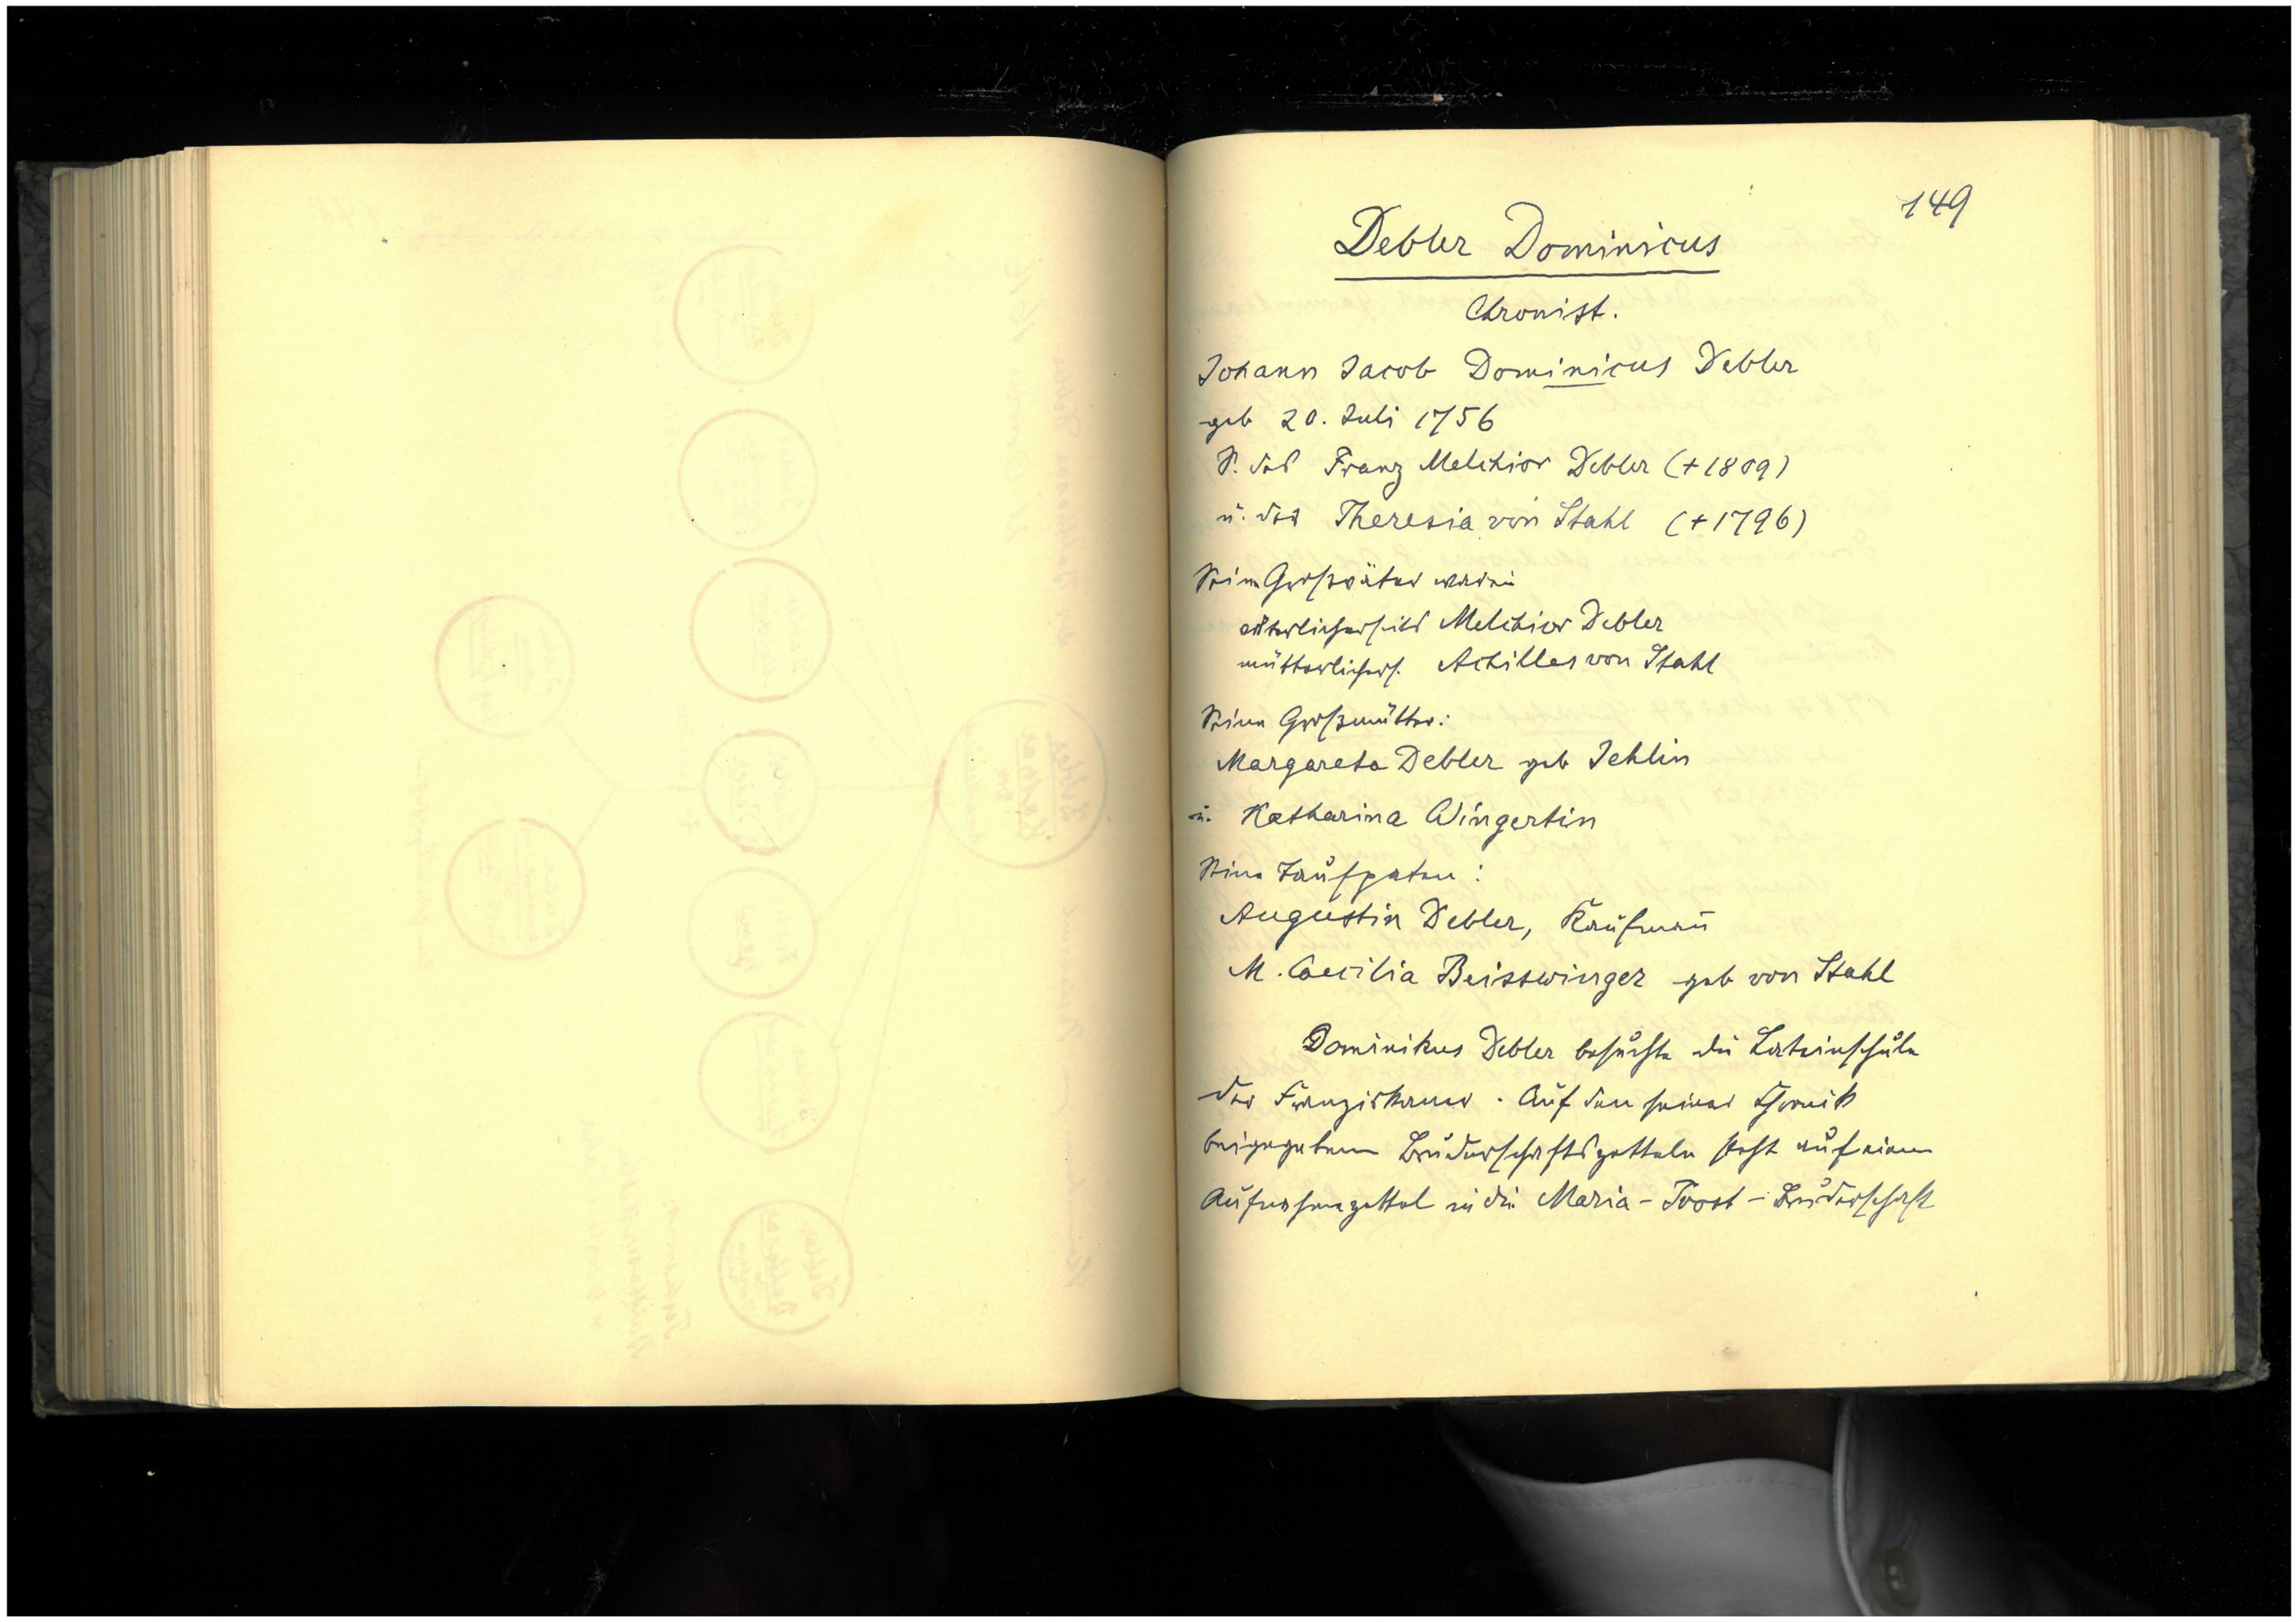 149
Debler Dominicus
Chronist.
Johann Jacob Dominicus Debler
geb 20. Juli 1756
S. des Franz Melchior Debler (+1809)
u. der Theresia von Stahl (+1796)
Seine Großväter waren
väterlicherseits Melchior Debler
mütterlichers. Achilles von Stahl
Seine Großmütter:
Margareta Debler geb Jehlin
u. Katharina Wingertin
Seine Taufpaten:
Augustin Debler, Kaufmañ
M. Caecilia Beisswinger geb von Stahl
Dominikus Debler besuchte die Lateinschule
der Franziskaner. Auf den seiner Chronik
beigegebenen Bruderschaftszetteln steht auf einem
Aufnahmezettel in die Maria-Trost-Bruderschaft